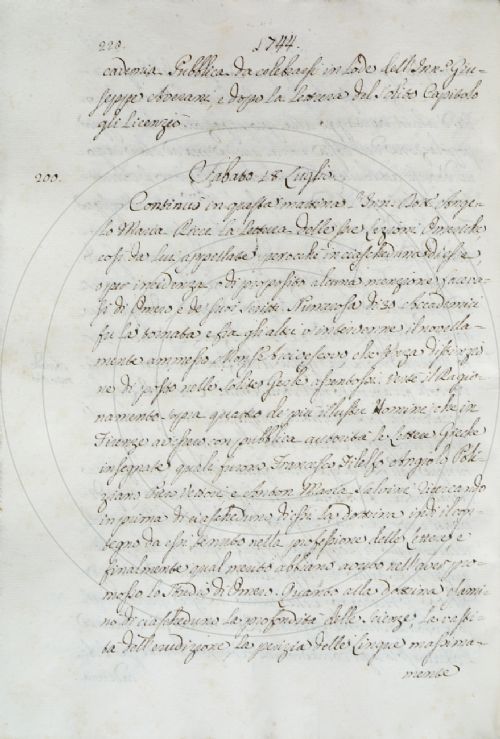 220. 1744.
cademia Pubblica da celebrarsi in Lode dell'Inn. Giu-
seppe Averani, e dopo la Lettura del Solito Capitolo
gli Licenziò
200. Sabato 18 Luglio
Continuò in questa mattina l'Inn. Dott. Ange-
lo Maria Ricci la lettura delle sue Lezioni Omeriche
così da lui appellate perocchè in ciascheduna di esse
o per incidenza, o di proposito alcuna menzione faceva-
si di Omero e de' suoi scritti. Numerosa di 30 Accademici
fu la tornata e fra gli altri v'intervenne il novella-
mente ammesso Mons. Arcivescovo che senza distinzio-
ne di posto nelle solite Sedie assentossi. Versò il Ragio-
namento sopra quattro de' più illustri Uomini, che in
Firenze avessero con pubblica autorità le Lettere Greche
insegnate quali furono Francesco Filelfo Angiolo Poli-
ziano Piero Vettori, e Anton Maria Salvini, ricercando
in prima di ciascheduno di essi la dottrina indi il con-
tegno da essi tenuto nella professione delle Lettere, e
finalmente qual merito abbiano avuto nell'aver pro-
mosso lo Studio di Omero. Quanto alla dottrina esami-
nò di ciascheduno la profondità delle scienze, la vasti-
tà dell'erudizione, la perizia delle Lingue massima-
mente